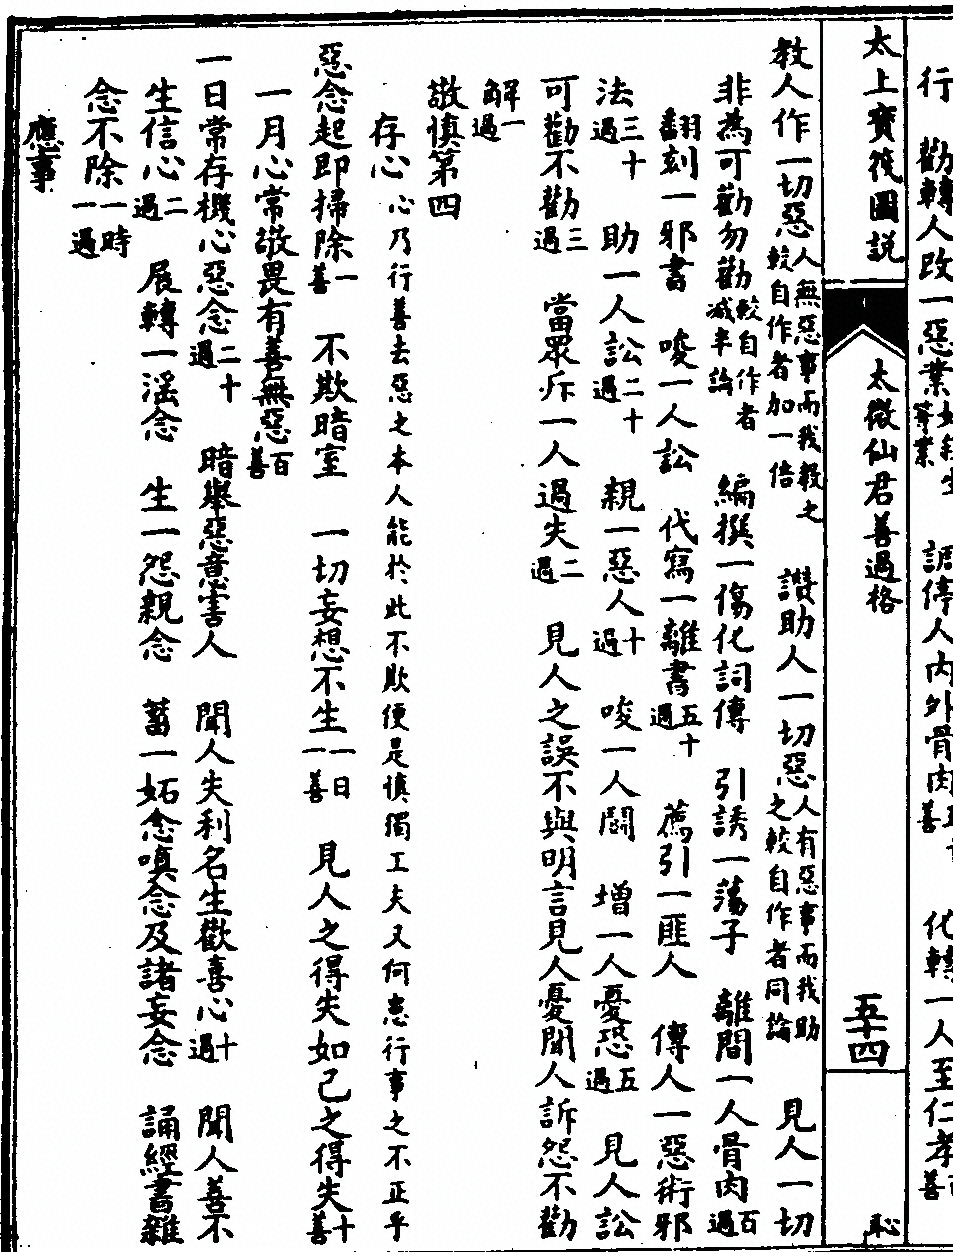 行　勸轉人改一惡業等業　調停人内外骨肉善　化轉一人至仁孝善
太上寶筏圖説　太微仙君善過格　五十四　恥
教人作一切惡人無惡事而我教之較自作者加一倍　讚助人一切惡人有惡事而我助之較自作者同論　見人一切
非為可勸勿勸較自作者減半論　編撰一傷化詞傳　引誘一蕩子　離間一人骨肉百過
翻刻一邪書　唆一人訟　代寫一離書五十過　薦引一匪人　傳人一惡術邪
法三十過　助一人訟二十過　親一惡人十過　唆一人鬬　增一人憂恐五過　見人訟
可勸不勸三過　當眾斥一人過失二過　見人之誤不與明言見人憂聞人訴怨不勸
解一過
敬慎第四
存心心乃行善去惡之本人能於此不欺便是慎獨工夫又何患行事之不正乎
惡念起即掃除一善　不欺暗室　一切妄想不生一日一善　見人之得失如己之得失十善
一月心常敬畏有善無惡百善
一日常存機心惡念二十過　暗舉惡意害人　聞人失利名生歡喜心十過　聞人善不
生信心二過　展轉一淫念　生一怨親念　蓄一妬念嗔念及諸妄念　誦經書雜
念不除一時一過
應事